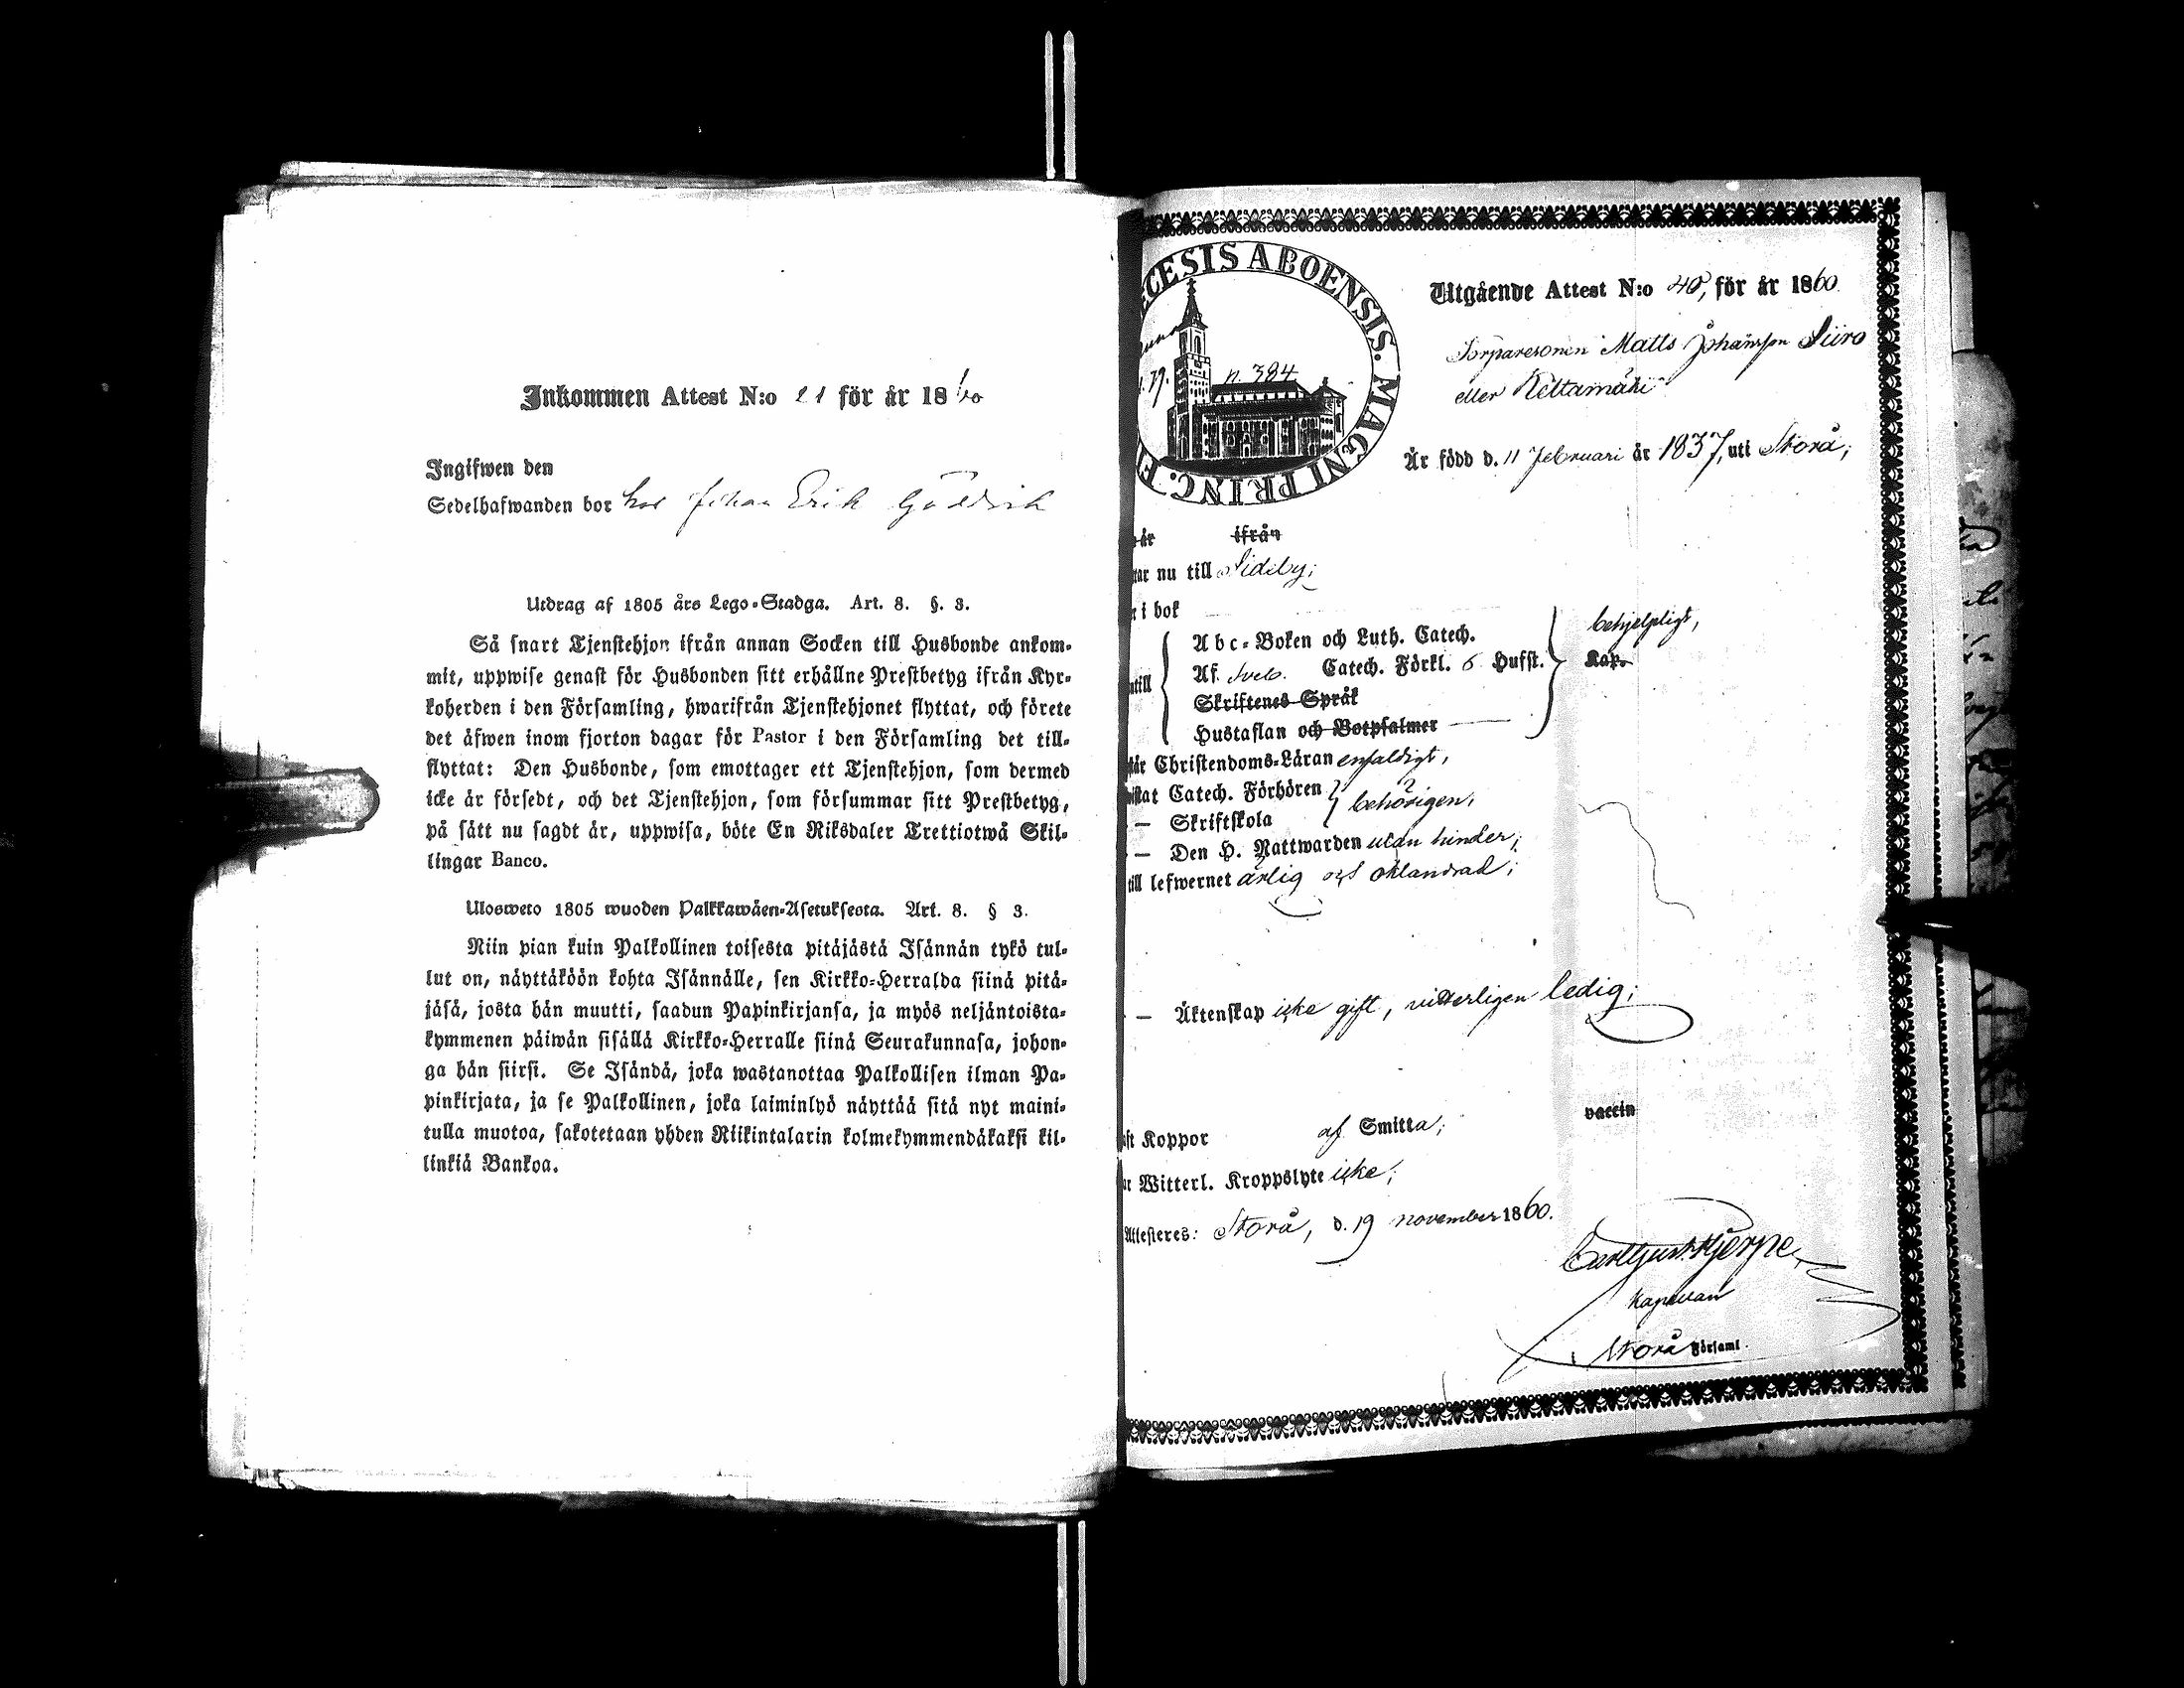 Inkommen Attest N:o 21 för år 1860
Ingifwen den
Sedelhafwanden bor hos Johan Erik
Utdrag af 1805 års Lego-Stadga. Art. 8. §. 3.
Så snart Tjenstehjon ifrån annan Socken till Husbonde ankom-
mit, uppwise genast för Husbonden sitt erhållne Prestbetyg ifrån Kyr-
koherden i den Församling, hwarifrån Tjenstehjonet flyttat, och förete
det äfwen inom fjorton dagar för Pastor i den Församling det till-
flyttat: Den Husbonde, som emottager ett Tjenstehjon, som dermed
icke är försedt, och det Tjenstehjon, som försummar sitt Prestbetyg,
på sätt nu sagdt är, uppwisa, böte En Riksdaler Trettiotwå Skil-
lingar Banco.
Ulosweto 1805 wuoden Palkkawäen-Asetuksesta. Art. 8. § 3.
Niin pian kuin Palkollinen toisesta pitäjästä Isännän tykö tul-
lut on, näyttäköön kohta Isännälle, sen Kirkko-Herralda siinä pitä-
jäsä, josta hän muutti, saadun Papinkirjansa, ja myös neljäntoista-
kymmenen päiwän sisällä Kirkko-Herralle siinä Seurakunnasa, johon-
ga hän siirsi. Se Isändä, joka wastanottaa Palkollisen ilman Pa-
pinkirjata, ja se Palkollinen, joka laiminlyö näyttää sitä nyt maini-
tulla muotoa, sakotetaan yhden Riikintalarin kolmekymmendäkaksi kil-
linkiä Bankoa.
CESIS ABOENSIS. MAGNI PRINC. F
n. 384
Utgående Attest N:o 40, för år 1860
Torparesonen Matts Johansson Siiro
eller Kettamäki
Är född d. 11 Februari år 1837, uti Storå;
år ifrån
tar nu till Sideby;
r i bok
Abc-Boken och Luth. Catech.
behjelpligt,
ntill
Af. Sveb. Catech. Förkl. 6 Hufst.
Kap.
Skriftenes Språk
Hustaflan och Botpsalmer
står Christendoms-Läran enfaldigt,
wistat Catech. Förhören
behörigen,
— Skriftskola
— Den H. Nattwarden utan hinder;
till lefwernet ärlig och oklandrad;
— Äktenskap icke gift, vitterligen ledig;
ft Koppor af Smitta;
vaccin
ar Witterl. Kroppslyte icke;
Attesteres: Storå, d. 19 november 1860.
Carl Gust. Hjerpe
Kapellan
Storå Församl.